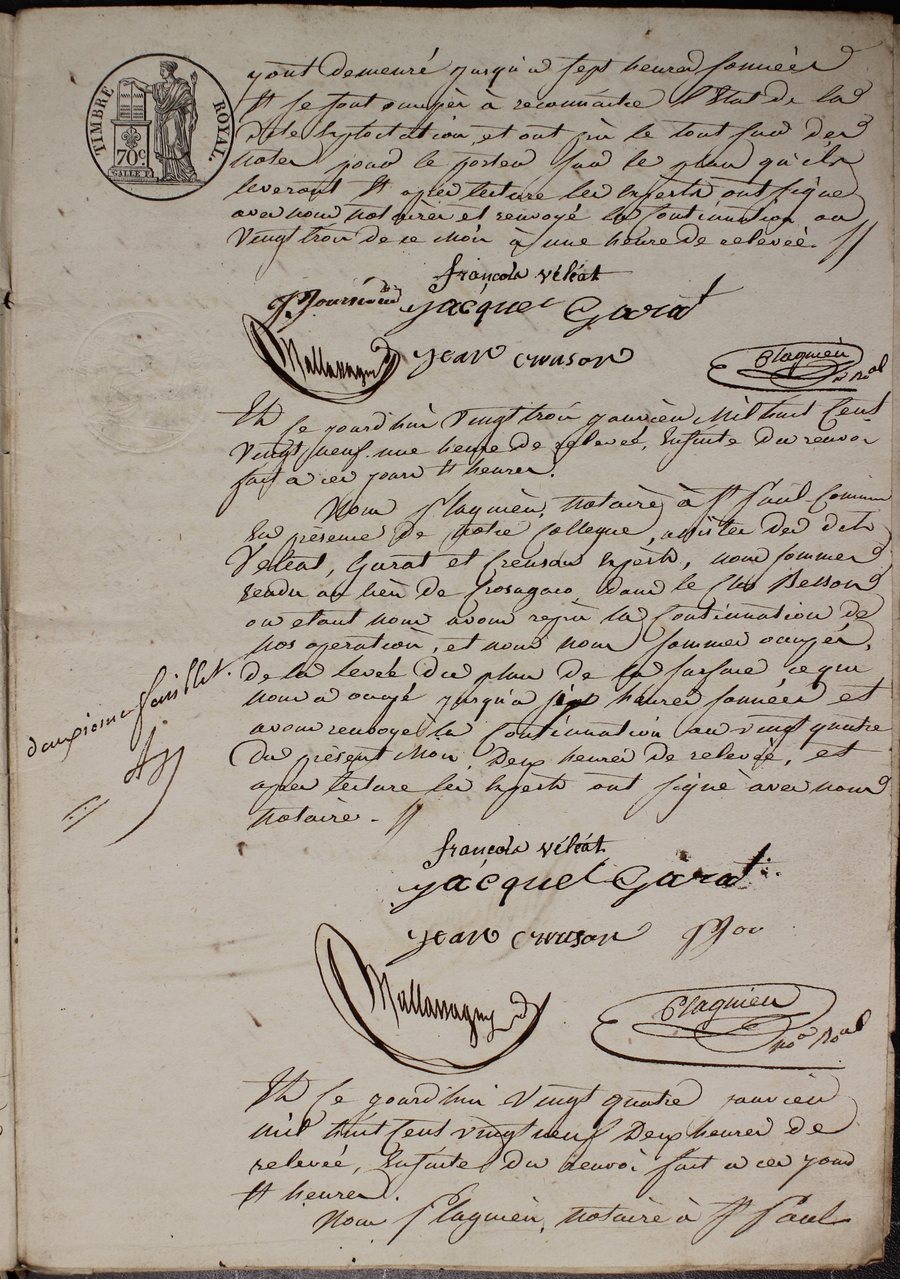 TIMBRE ROYAL.
70c
y ont demeuré jusqu'a sept heures sonnées
Et se sont occupér à reconnaitre l'Etat de la
dite Exploitation, et ont pris le tout sur des
notes pour le porter sur le plan qu'ils
leveront Et après lecture les Experts ont signé
avec nous notaires et renvoyé la Continuation au
Vingt trois de ce Mois à une heure de relevée. //
françois véléat
jacquet Garat
Mallassagny jean creuson Plagnieu
no Roal
Et Ce jourd'hui Vingt trois janvier Mil huit Cent
Vingt neuf. une heure de relevée, Ensuite du renvoi
fait à ces jours Et heures.
Nous Plagnieu, notaire à St Paul Commun
En présence de notre Collegue, assistés des dits
Veleat, Garat et Creuson Experts, nous sommes
rendu au lieu de Crosagaco, dans le Clos Besson
ou etant nous avons repris la Continuation de
nos operations, et nous nous sommes occupés,
de la levée du plan de la surface ce qui
nous a occupé jusqu'a six heures sonnées et
avons renvoyé la Continuation au vingt quatre
du présent Mois, Deux heures de relevée, et
après lecture les Experts ont signé avec nous
notaire. //
deuxieme feuillet.
françois véléat
jacquet Garat
jean creuson
Mallassagny Plagnieu
no Roal
Et Ce jourd'hui Vingt quatre janvier
mil huit Cent vingt neuf Deux heures de
relevée, Ensuite du renvoi fait à ces jours
Et heures.
Nous Plagnieu, notaire à St Paul